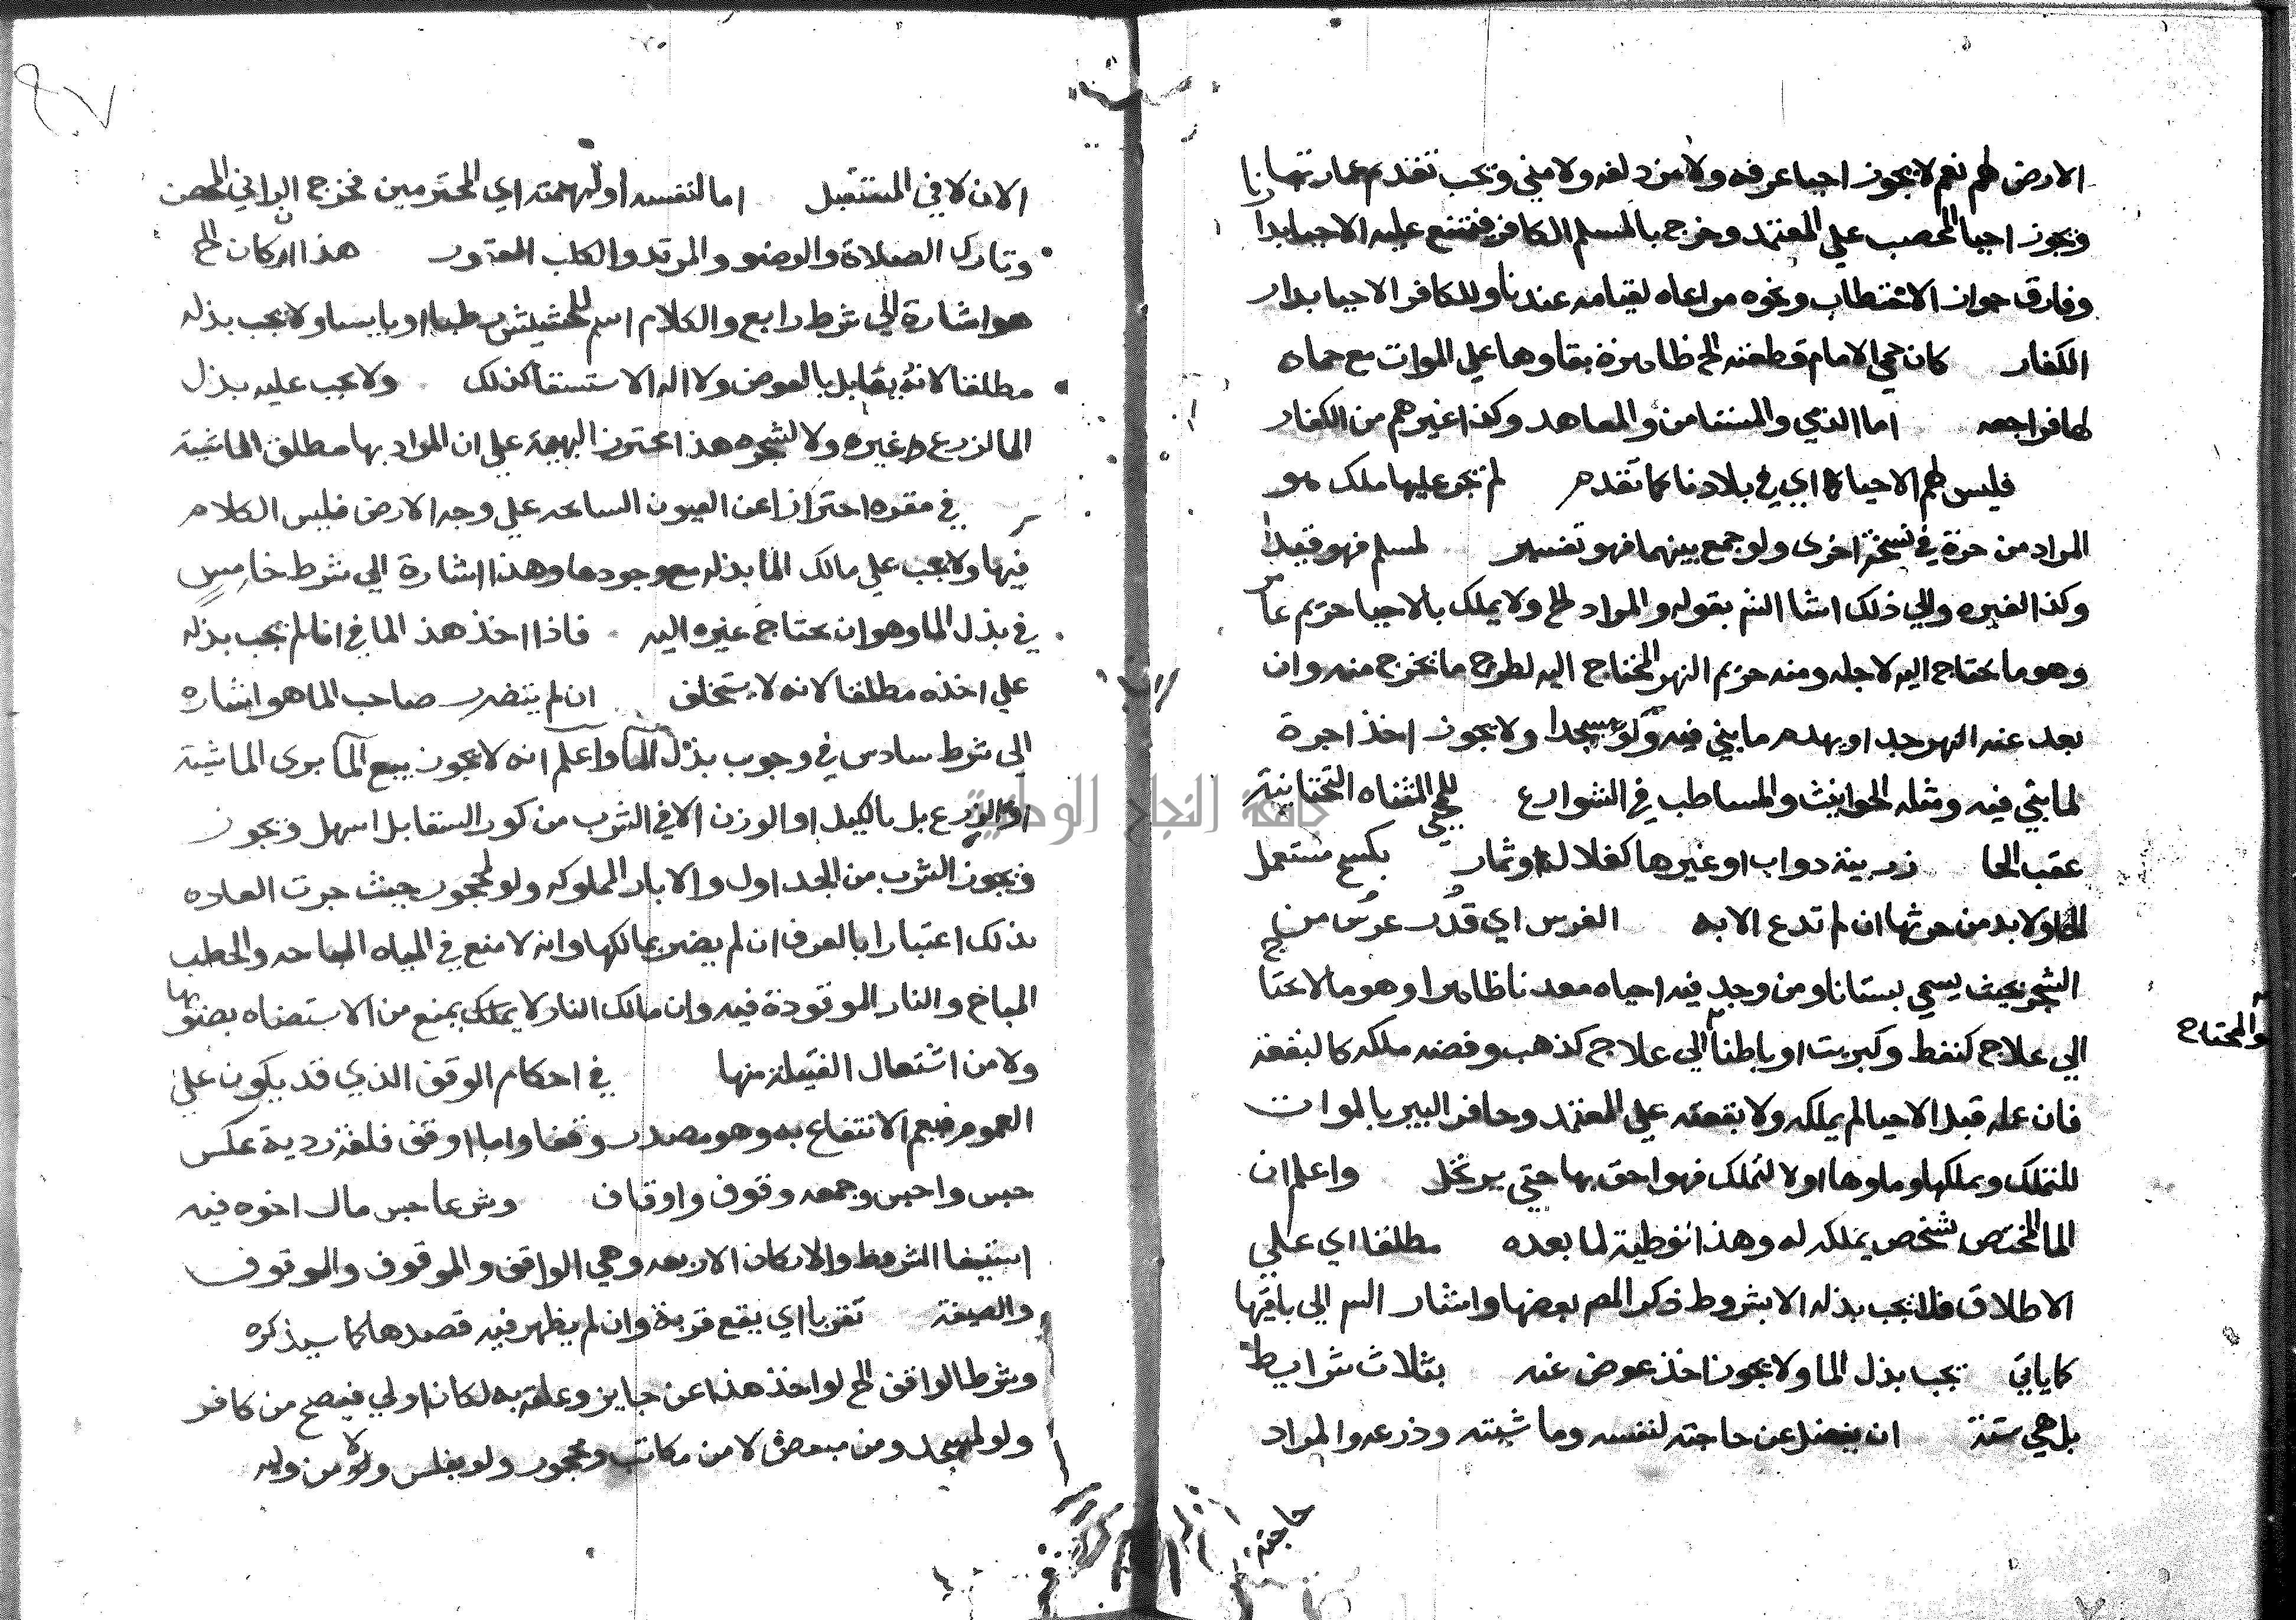 الارض لهم نعم لا يجوز احيا عرفه ولا مزدلفه ولا مني ويجب تقدم عمارتها
ويجوز احيا المحصب علي المعتمد وخرج بالمسلم الكافر فيمتنع عليه الاحيا بدارنا
وفارق جواز الاحتطاب ونحوه من اعاه لقيامه عندنا وللكافر الاحيا بدار
الكفار كان حمي الامام قطعة الخ ظاهره بقاوها علي الموات مع حماه
لها فراجعه اما الذمي والمستامن والمعاهد وكذا غيرهم من الكفار
فليس لهم الاحيا اي في بلادنا كما تقدم لم يجر عليها ملك هو
المراد من حرة في نسخة اخرى ولو جمع بينهما فهو تفسير لمسلم فهو قيد
وكذا الغيره والي ذلك اشا الش بقوله والمراد الخ ولا يملك بالاحيا حريم عامر
وهو ما يحتاج اليه لاجله ومنه حريم النهر المحتاج اليه لطرح ما يخرج منه وان
بعد عنه النهر جدا ويهدم ما بني فيه ولو مسجدا ولا يجوز اخذ اجرة
لما بني فيه ومثله الحوانيت والمساطب في الشوارع للحي المثناه التحتانية
عقب الحا زريبة دواب او غيرها كغلال او ثمار بكسح مستعمل
الما ولا بد من حرثها ان لم تدع الا به الغرس اي قدر غرس من
الشجر بحيث يسمي بستانا ومن وجد فيه احياه معدنا ظاهرا وهو ما لا يحتاج
الي علاج كنفط وكبريت او باطنا الي علاج كذهب وفضه ملكه كالبقعة
والمحتاج
فان علمه قبل الاحيا لم يملكه ولا بقعته علي المعتمد وحافر البير بالموات
للتملك ويملكها وماوها اولا لتملك فهو احق بها حتي يرتحل واعلم ان
الما المختص شخص يملكه له وهذا توطية لما بعده مطلقا اي علي
الاطلاق فلا يجب بذله الا بشروط ذكر المص بعضها واشار الش الي باقيها
كما ياتي يجب بذل الما ولا يجوز اخذ عوض عنه بثلاث شرايط
بل هي ستة ان يفضل عن حاجته لنفسه وماشيته وزرعه والمراد
حاجته
الان لا في المستقبل اما لنفسه او لبهيمته اي المحترمين فخرج الزاني المحصن
وتارك الصلاة والوضو والمرتد والكلب العقور هذا ان كان الخ
هو اشارة الي شرط رابع والكلام اسم للحشيش رطبا او يابسا ولا يجب بذله
مطلقا لانه يقابل بالعوض ولا اله الاستسقا كذلك ولا يجب عليه بذل
الما لزرع غيره ولا لشجره هذا محترز البهيمة علي ان المراد بها مطلق الماشية
في مقره احترازا عن العيون السايحه علي وجه الارض فليس الكلام
فيها ولا يجب علي مالك الما بذله مع وجودها وهذا اشارة الي شرط خامس
في بذل الما وهو ان يحتاج غيره اليه فاذا اخذ هذ الما في انا لم يجب بذله
علي اخذه مطلقا لانه لا يستخلف ان لم يتضرر صاحب الما هو اشاره
الى شرط سادس في وجوب بذل الما واعلم انه لا يجوز بيع الما بري الماشية
او الزرع بل بالكيل او الوزن الا في الشرب من كوز السقا بل اسهل ويجوز
ويجوز الشرب من الجداول والابار المملوكه ولو لمحجور حيث جرت العاده
بذلك اعتبارا بالعرف ان لم يضر بمالكها وانه لا منع في المياه المباحه والحطب
المباح والنار الموقودة فيه وان مالك النار لا يملك يمنع من الاستضاه بضوئها
ولا من اشتعال الفتيلة منها في احكام الوقف الذي قد يكون علي
العموم فيعم الانتفاع به وهو مصدر وقف واما اوقف فلغة ردية عكس
حبس واحبس وجمعه وقوف واوقاف وشرعا حبس مال اخوه فيه
استيفا الشروط والاركان الاربعه وهي الواقف والموقوف والموقوف
والصيغة تقربا اي يقع قربة وان لم يظهر فيه قصدها كما سيذكره
وشرط الواقف الخ لو اخذ هذا عن جايز وعلقه به لكان اولي فيصح من كافر
ولو لمسجد ومن مبعض لا من مكاتب ومحجور ولو بفلس ولا من وليه
جامعة النجاح الوطنية